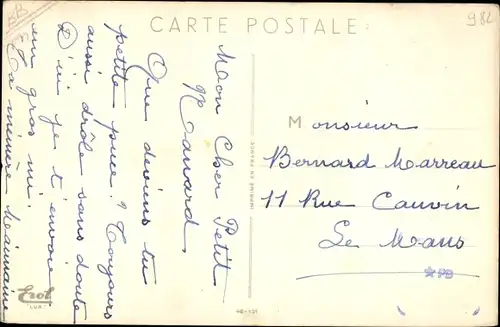 CARTE POSTALE
982
Mon Cher Petit
Nanard
Que deviens tu
petite puce ? Toujours
aussi drôle sans doute
D'ici je t'envoie
un gros mi.
Ta mémère Maimaine
Monsieur
Bernard Marreau
11 Rue Cauvin
Le Mans
PB
Erol
"LUX"